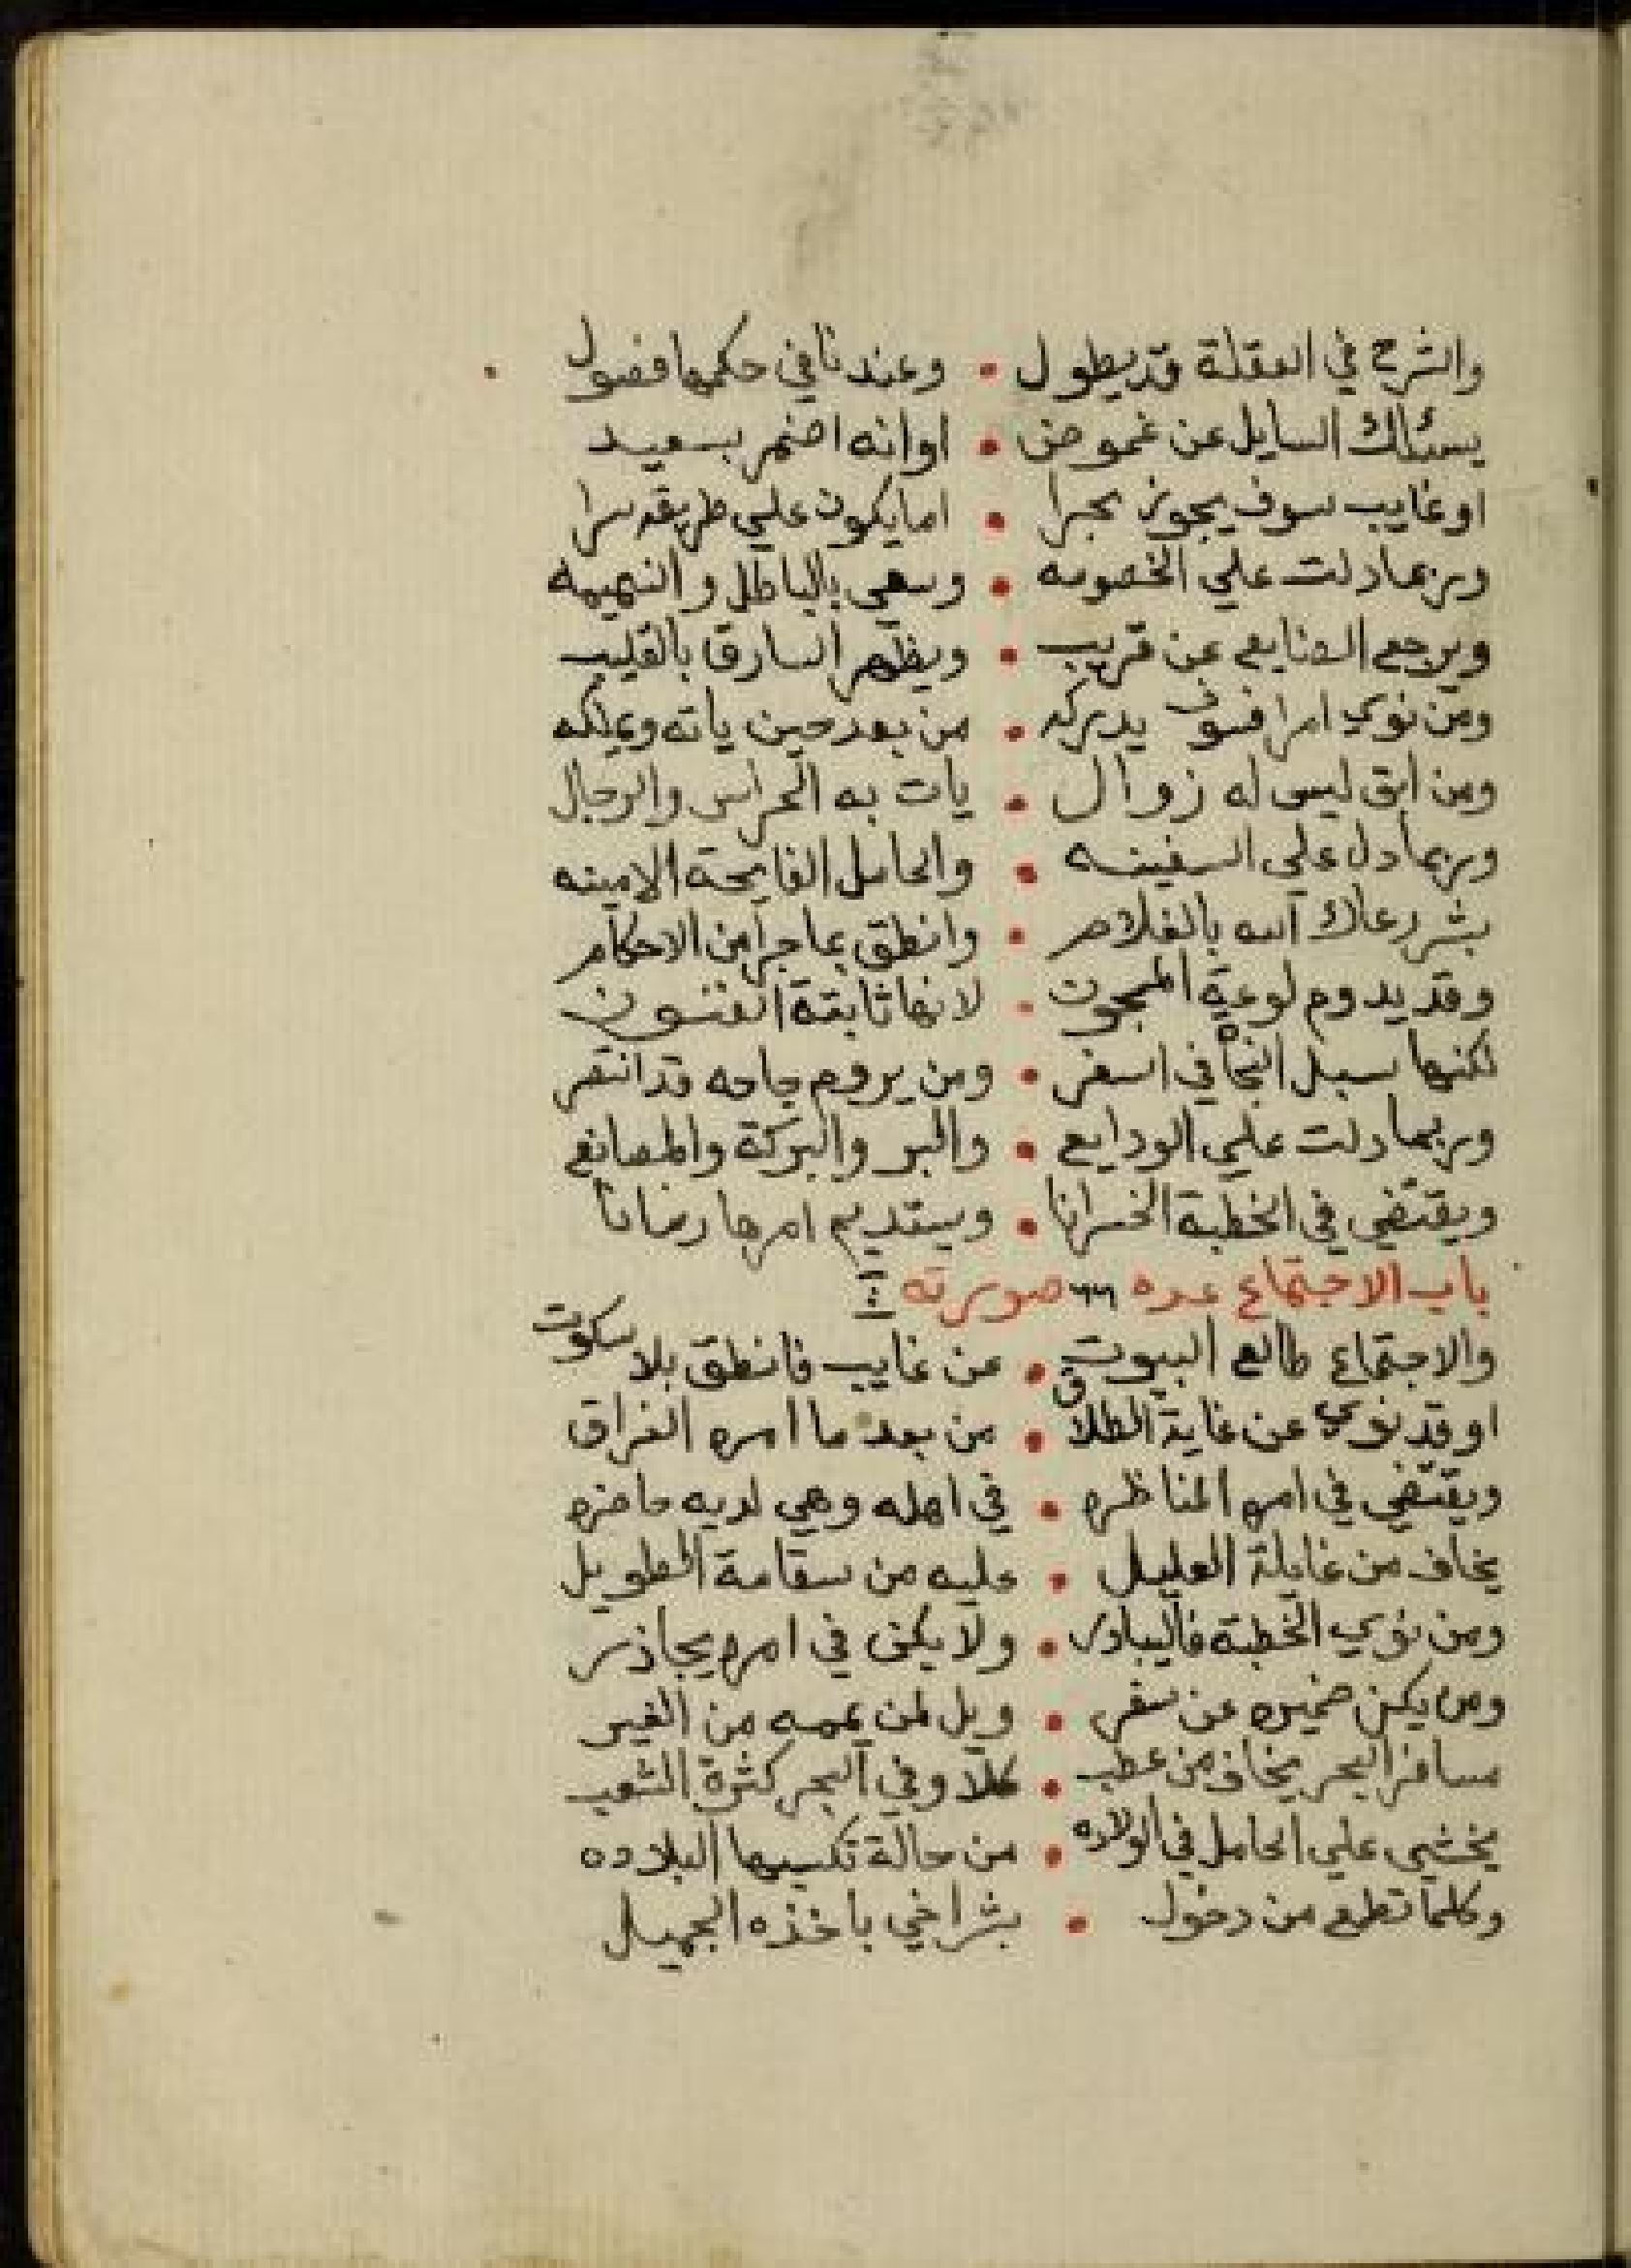 والشرح في العقلة قد يطول • وعندنا في حكمها فصول •
يسئلك السايل عن غموض • او انه اضمر بسعيد
او غايب سوف يجوز بحرا • اما يكون علي طريقه برا
وربما دلت علي الخصومه • وسعي بالباطل والنميمه
ويرجع الضايع عن قريب • ويظهر السارق بالقليب
ومن نوي امرا فسوف يدركه • من بعد حين ياته ويملكه
ومن ابق ليس له زوال • يات به الحراس والرجال
وربما دل علي السفينه • والحامل الفايحة الامينه
بشر رعاك الله بالغلام • وانطق بما جرا من الاحكام
وقد يدوم لوعة المسجون • لانها ثابتة الفنون
لكنها سبل النجاه في اسفر • ومن يروم حاجه قد انتفر
وربما دلت علي الودايع • والبر والبركة والمصانع
ويقتضي في الخطبة الخسرانا • ويستديم امرها زمانا
باب الاجتماع عدده ٦٦ صورته
والاجتماع طالع البيوت • عن غايب فانطق بلا سكوت
او قد نوي عن غاية الطلاق • من بعد ما امره الفراق
ويقتضي في امره المناظره • في اهله وهي لديه حاضره
يخاف من غايلة العليل • عليه من سقامة الطويل
ومن نوي الخطبة فاليبادر • ولا يكن في امره يحاذر
ومن يكن ضميره عن سفر • ويل لمن يممه من الغير
مسافر البحر يخاف من عطب • كلا وفي البحر كثرة الشعب
يخشي علي الحامل في الولاده • من حالة تكسبها البلاده
وكلما تطمع من دخول • بشر اخي باخذه الجميل